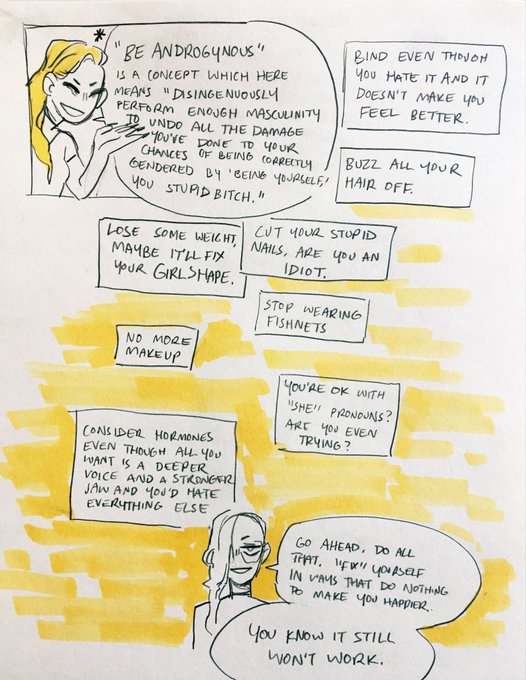 *
"BE ANDROGYNOUS"
IS A CONCEPT WHICH HERE
MEANS "DISINGENUOUSLY
PERFORM ENOUGH MASCULINITY
TO UNDO ALL THE DAMAGE
YOU'VE DONE TO YOUR
CHANCES OF BEING CORRECTLY
GENDERED BY 'BEING YOURSELF,'
YOU STUPID BITCH."
BIND EVEN THOUGH
YOU HATE IT AND IT
DOESN'T MAKE YOU
FEEL BETTER.
BUZZ ALL YOUR
HAIR OFF.
LOSE SOME WEIGHT,
MAYBE IT'LL FIX
YOUR GIRLSHAPE.
CUT YOUR STUPID
NAILS, ARE YOU AN
IDIOT.
STOP WEARING
FISHNETS
NO MORE
MAKEUP
YOU'RE OK WITH
"SHE" PRONOUNS?
ARE YOU EVEN
TRYING?
CONSIDER HORMONES
EVEN THOUGH ALL YOU
WANT IS A DEEPER
VOICE AND A STRONGER
JAW AND YOU'D HATE
EVERYTHING ELSE
GO AHEAD, DO ALL
THAT. "FIX" YOURSELF
IN WAYS THAT DO NOTHING
TO MAKE YOU HAPPIER.
YOU KNOW IT STILL
WON'T WORK.